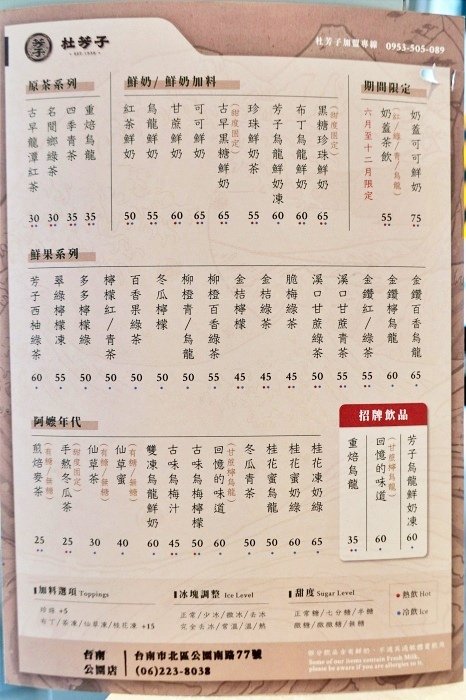 芳子
杜芳子
EST. 1938
杜芳子加盟專線 0953-505-089
原茶系列
古早龍潭紅茶 30
名間鄉綠茶 30
四季青茶 35
重焙烏龍 35
鮮奶/鮮奶加料
紅茶鮮奶 50
烏龍鮮奶 55
甘蔗鮮奶 60
可可鮮奶 65
古早黑糖鮮奶(甜度固定) 60
珍珠鮮奶茶 55
芳子烏龍鮮奶凍 60
布丁烏龍鮮奶 60
黑糖珍珠鮮奶(甜度固定) 65
期間限定
六月至十二月限定
奶蓋茶飲(紅/綠/青/烏龍) 55
奶蓋可可鮮奶 75
鮮果系列
芳子西柚綠茶 60
翠綠檸檬凍 55
多多檸檬綠 50
檸檬紅/青茶 50
百香果綠茶 50
冬瓜檸檬 50
柳橙青/烏龍 50
柳橙百香綠茶 55
金桔檸檬 45
金桔綠茶 45
脆梅綠茶 45
溪口甘蔗綠茶 50
溪口甘蔗青茶 55
金鑽紅/綠茶 55
金鑽檸烏龍 60
金鑽百香烏龍 65
阿嬤年代
煎焙麥茶(有糖/無糖) 25
手熬冬瓜茶(甜度固定) 25
仙草茶(有糖/無糖) 30
仙草蜜(有糖/無糖) 40
雙凍烏龍鮮奶 60
古味烏梅汁 45
古味烏梅檸檬 50
回憶的味道(甘蔗檸烏龍) 60
冬瓜青茶 50
桂花蜜烏龍 50
桂花蜜奶綠 60
桂花凍奶綠 65
招牌飲品
重焙烏龍 35
回憶的味道(甘蔗檸烏龍) 60
芳子烏龍鮮奶凍 60
加料選項 Toppings
珍珠 +5
布丁/茶凍/仙草凍/桂花凍 +15
冰塊調整 Ice Level
正常/少冰/微冰/去冰
完全去冰/常溫/溫/熱
甜度 Sugar Level
正常糖/七分糖/半糖
微糖/微微糖/無糖
熱飲 Hot
冷飲 Ice
台南
公園店
台南市北區公園南路77號
(06)223-8038
Some of our items contain Fresh Milk,
please be aware if you are allergies to it.